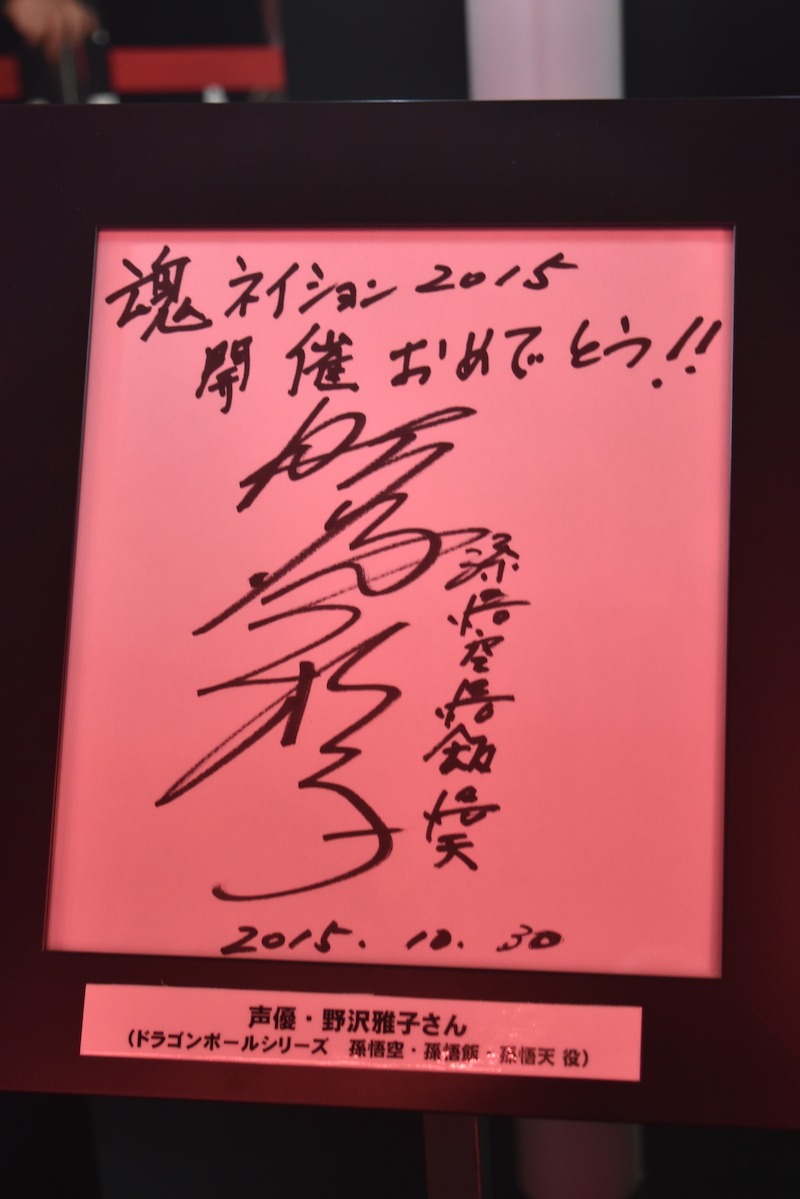 魂ネイション2015
開催おめでとう!!
野沢雅子
孫悟空悟飯悟天
2015.10.30
声優・野沢雅子さん
(ドラゴンボールシリーズ 孫悟空・孫悟飯・孫悟天 役)